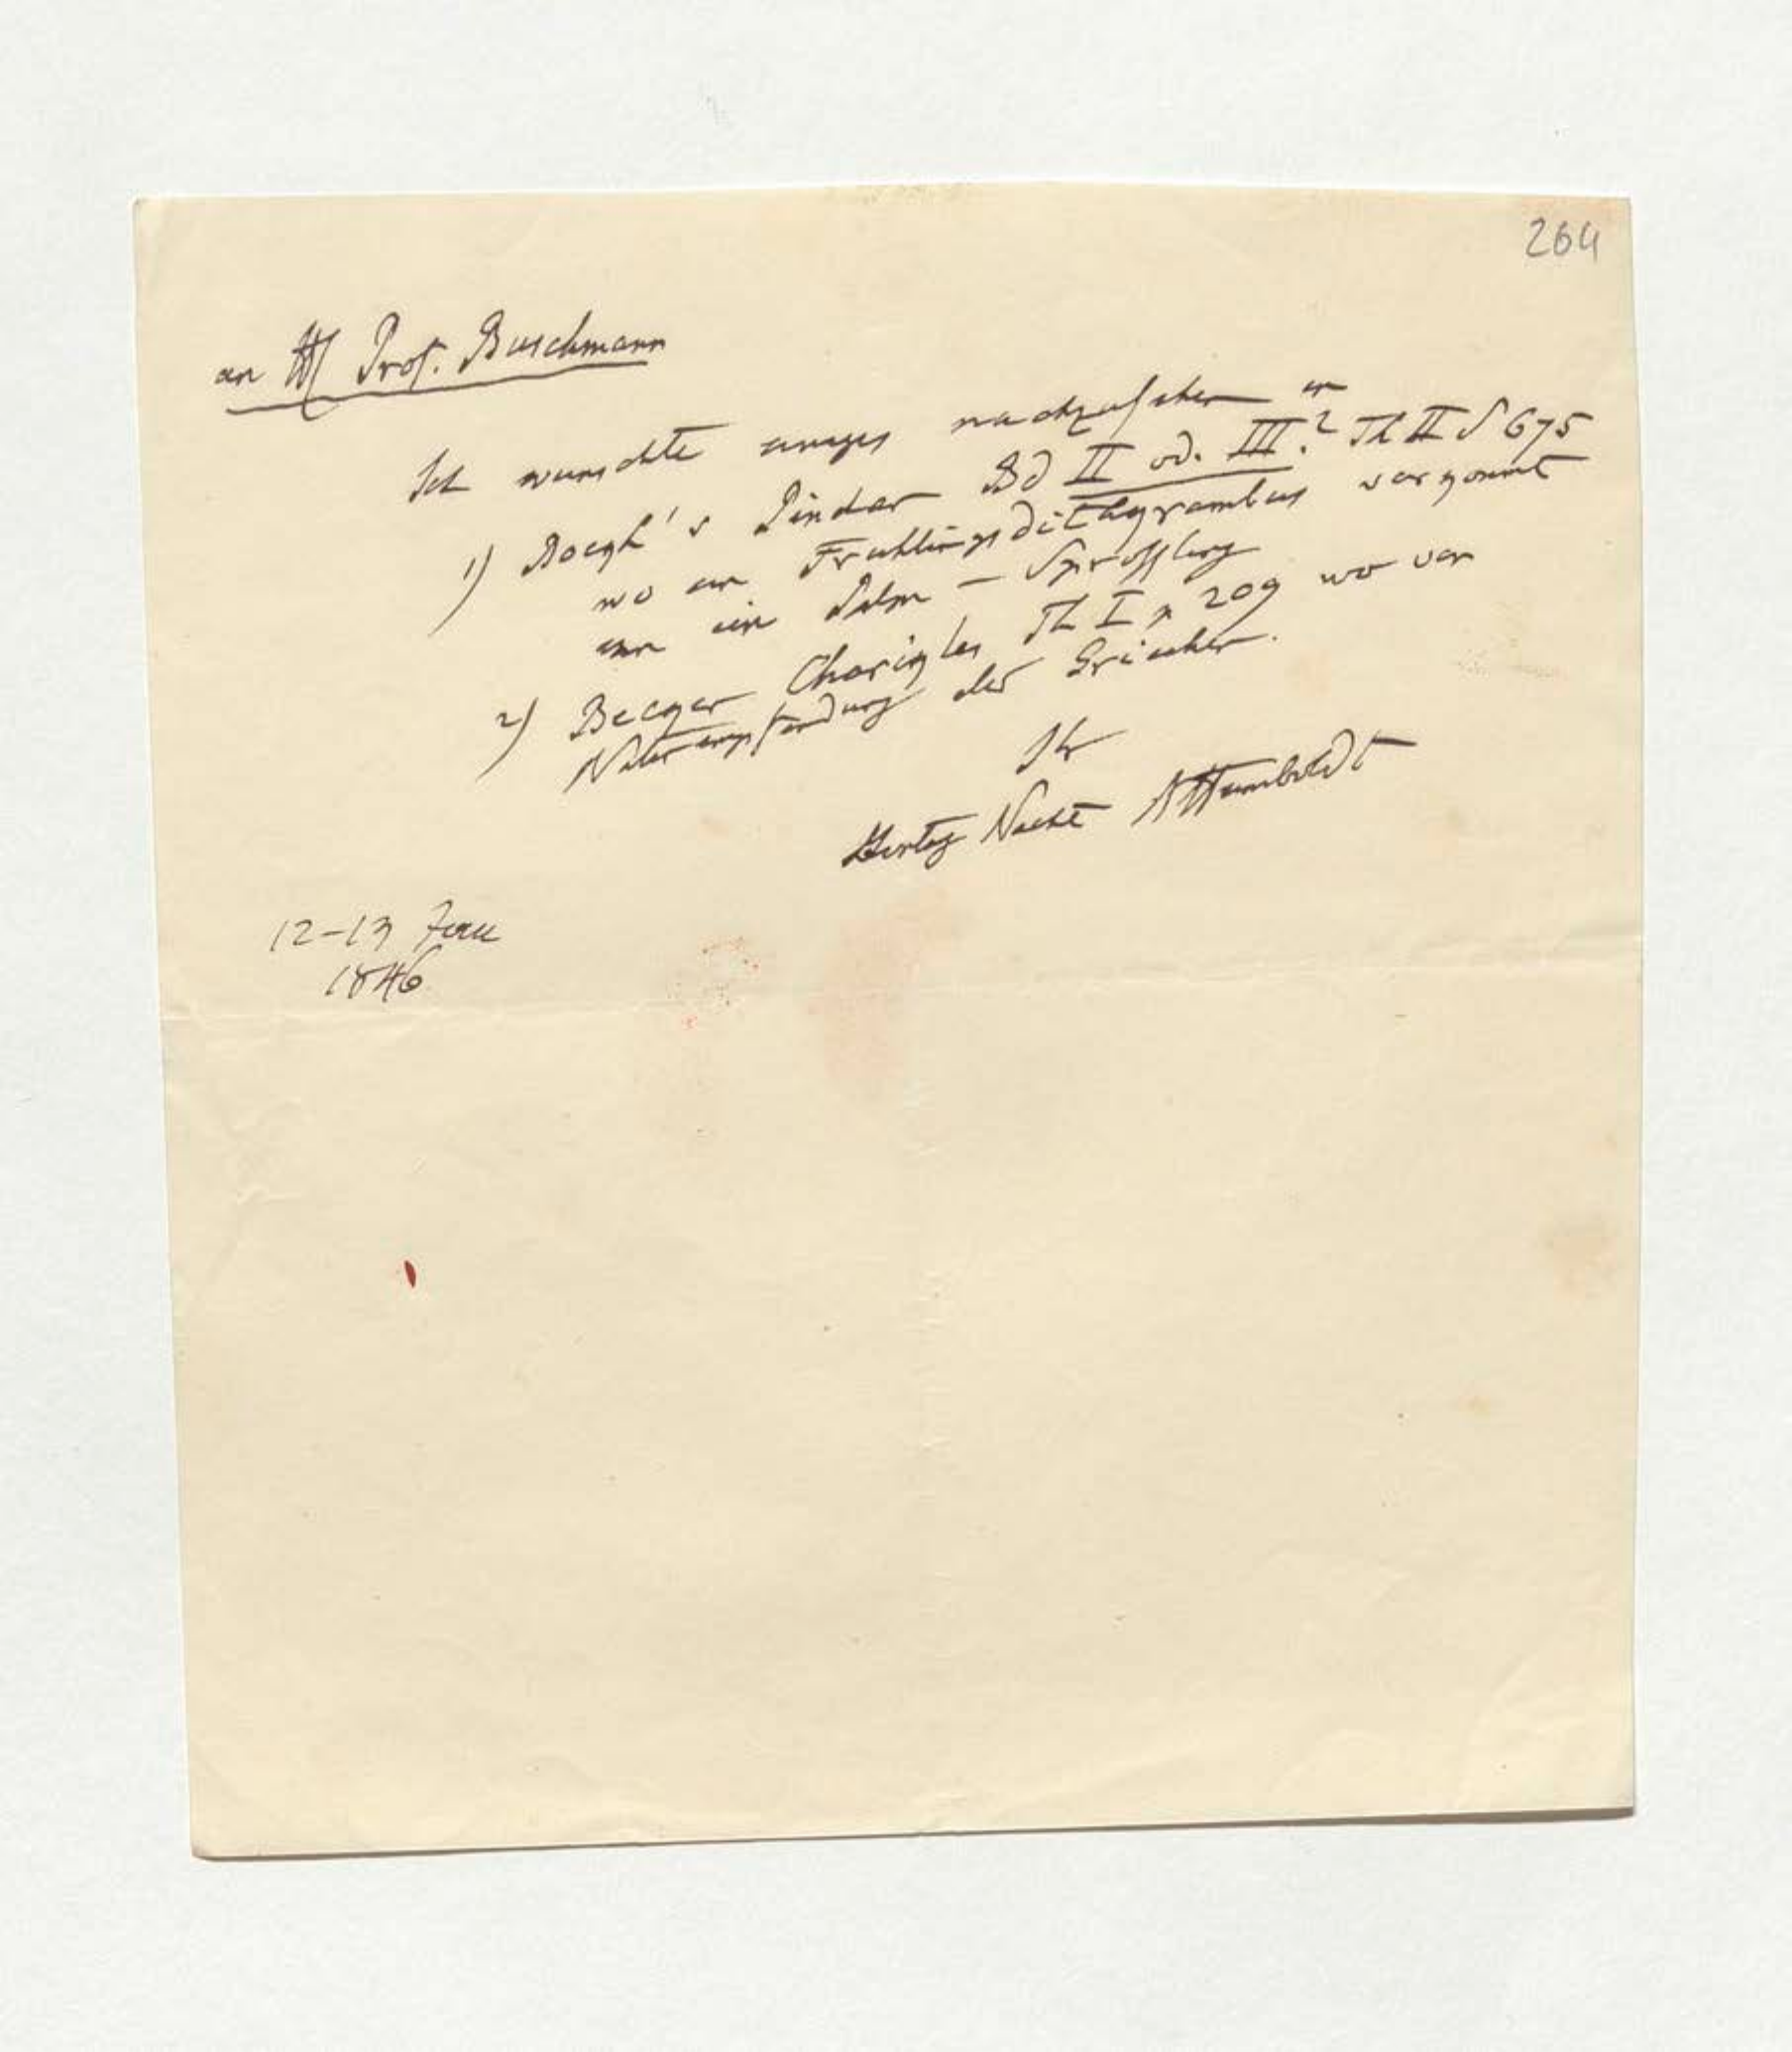 264
an H Prof. Buschmann
Ich wunschte einiges nachzusehen in
1) Boekh's Pindar Bd II od. III.? Th II S 675
wo ein Fruhlingsdithyrambus vorkomt
ein Palm-Sprossling
2) Becker Charikles Th I p 209 wo von
Naturempfindung der Griechen.
Ihr
AHumboldt
Nacht
12-13 Jan
1846